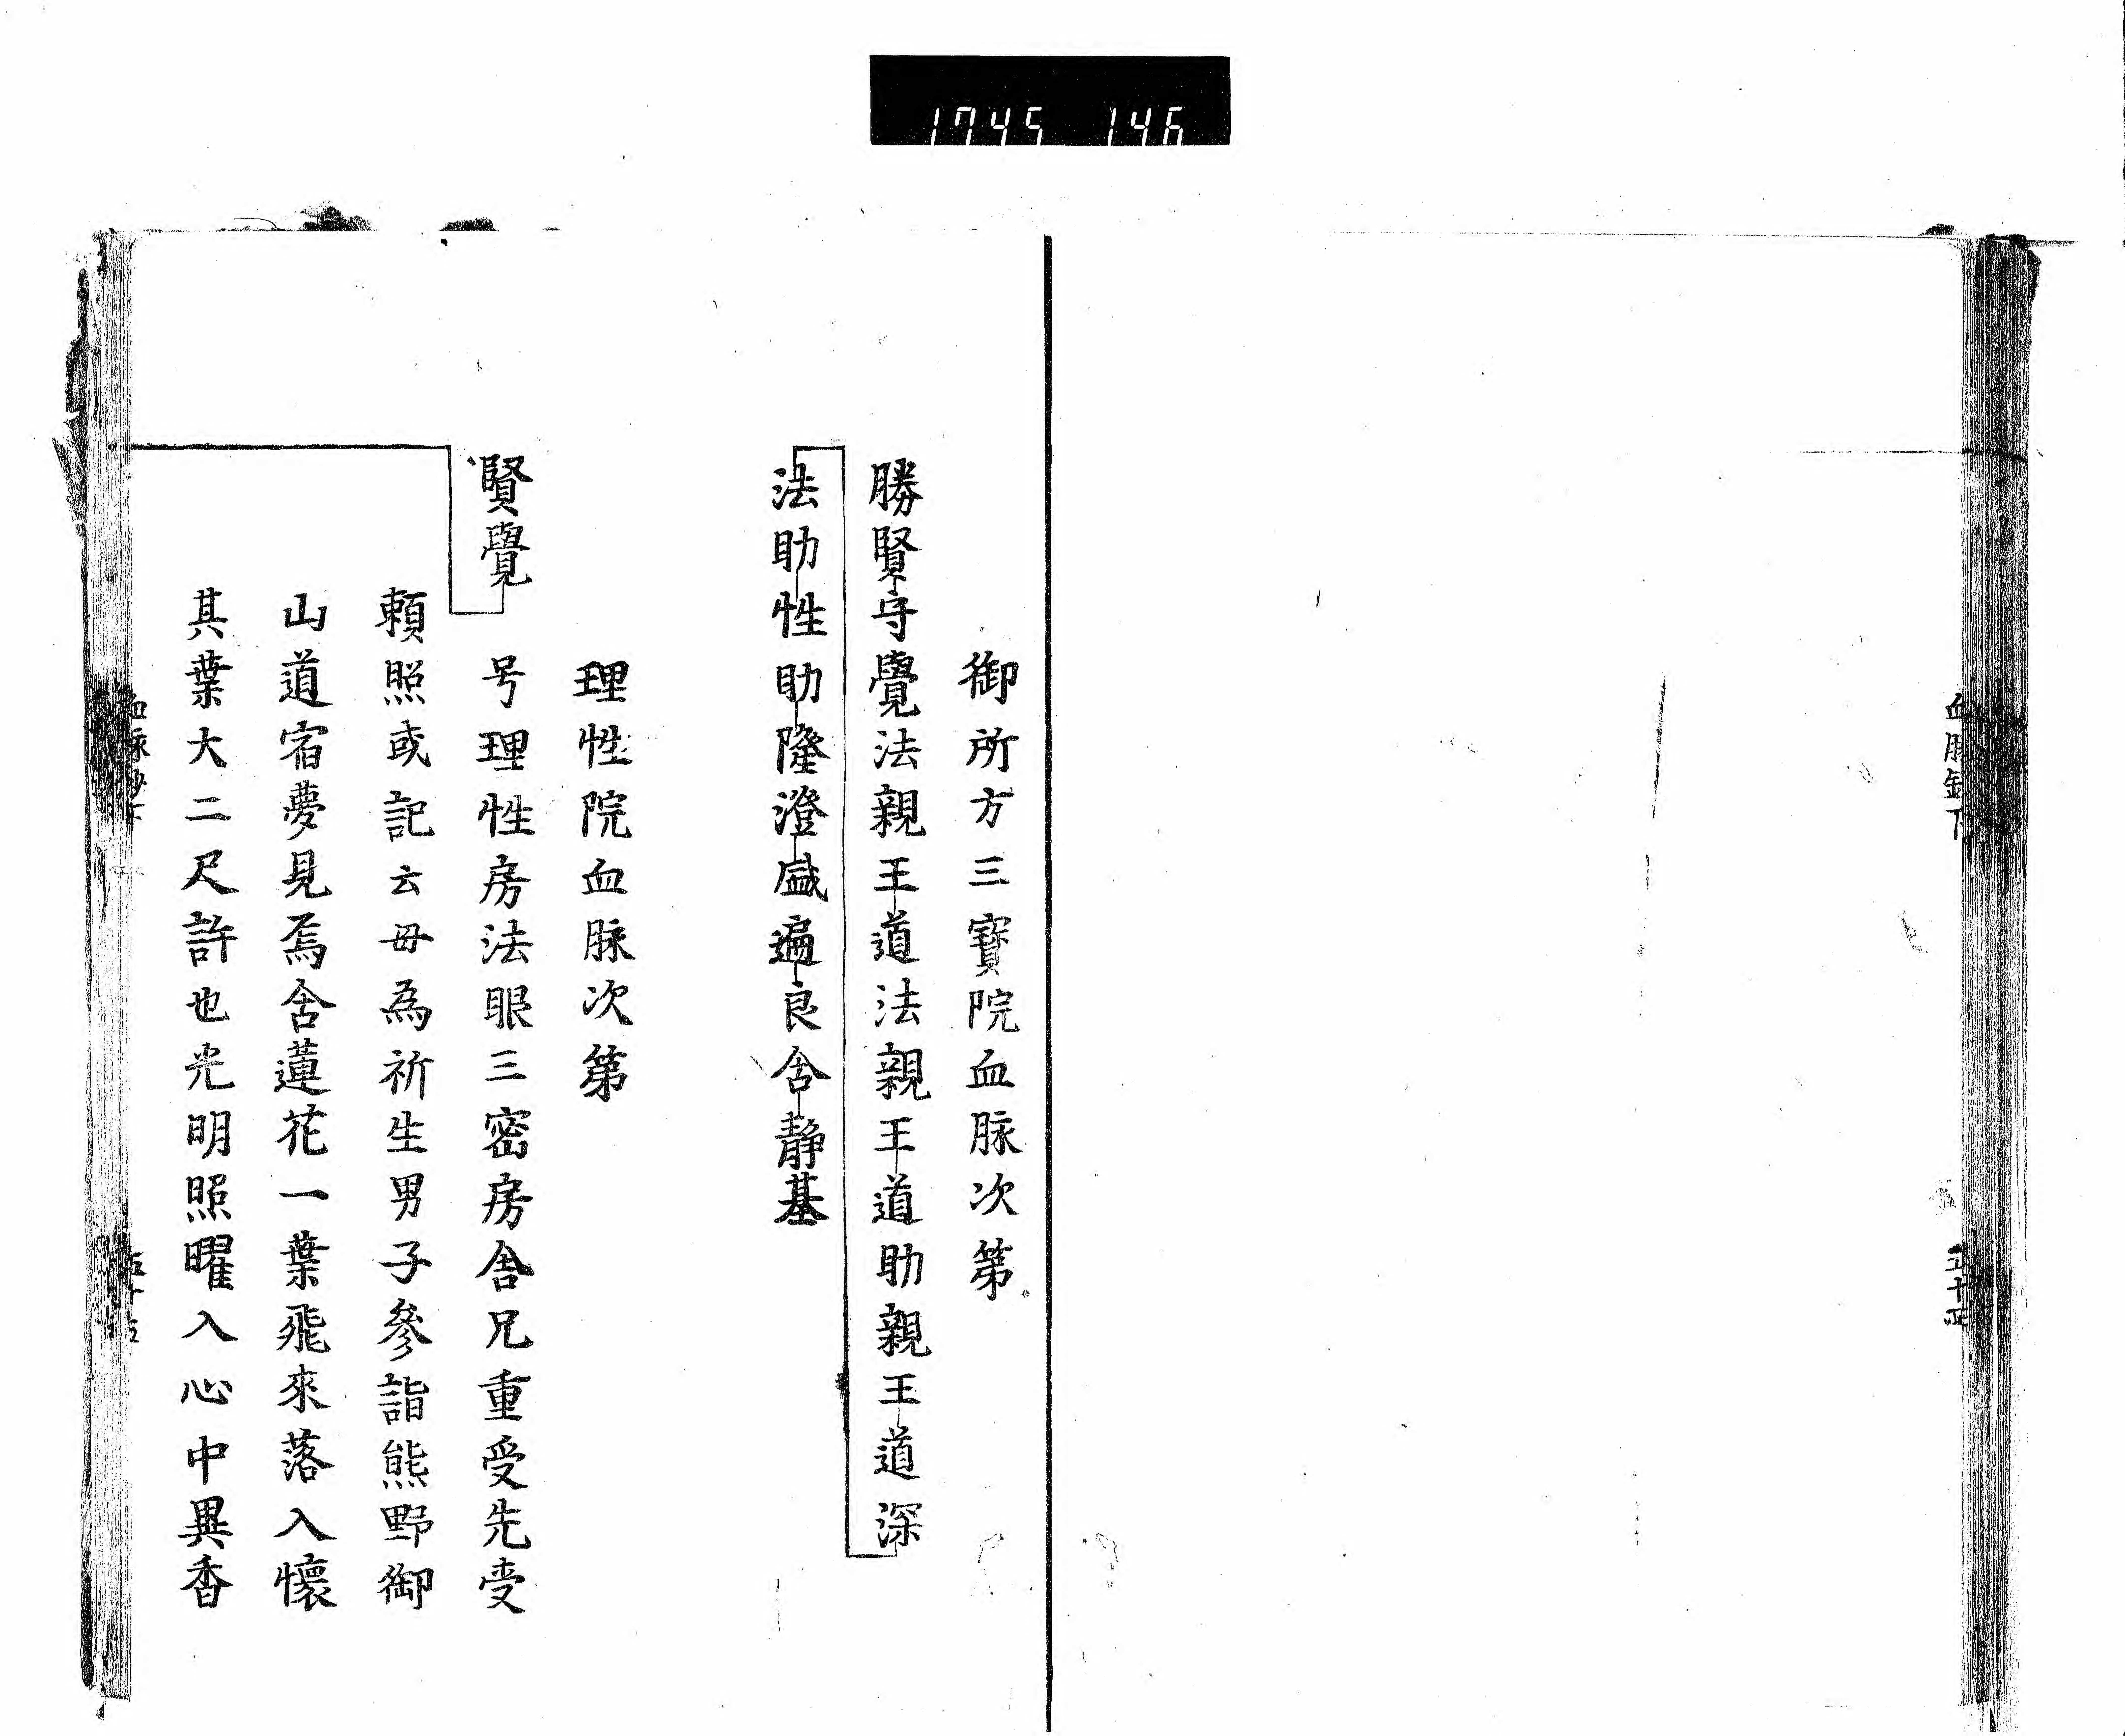 1745 146
御所方三寶院血脉次第
勝賢守覺法親王道法親王道助親王道深
法助性助隆澄盛遍良含靜基
理性院血脉次第
賢覺
号理性房法眼三密房舎兄重受先受
頼照或記云毋為祈生男子參詣熊野御
山道宿夢見焉含蓮花一葉飛來落入懷
其葉大二尺許也光明照曜入心中異香